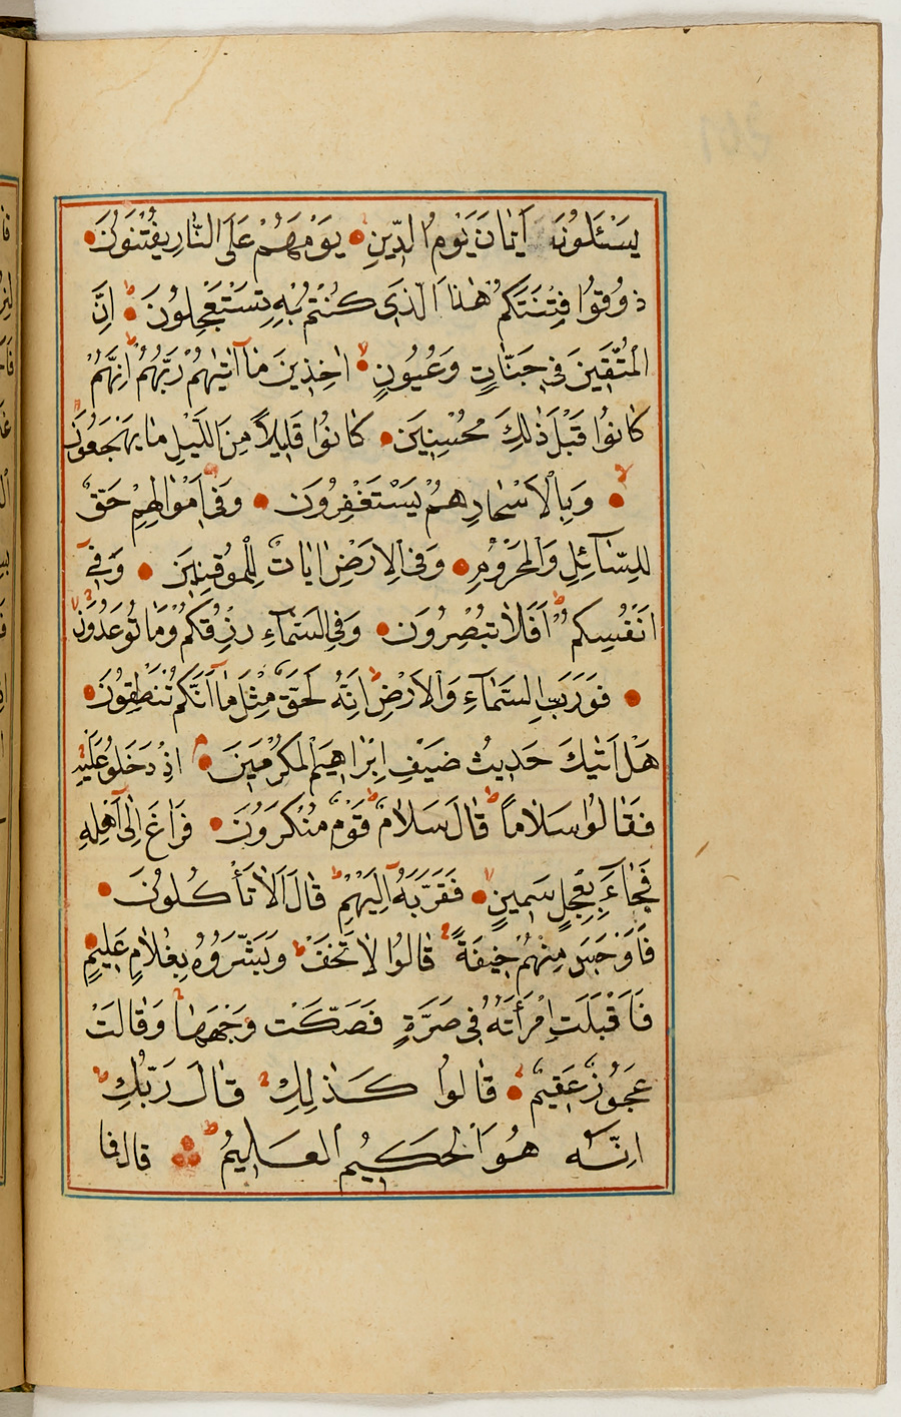 يَسْئَلُونَ اَيَّانَ يَوْمُ الدِّينِ يَوْمَ هُمْ عَلَى النَّارِ يُفْتَنُونَ
ذُوقُوا فِتْنَتَكُمْ هٰذَا الَّذِى كُنْتُمْ بِهِ تَسْتَعْجِلُونَ اِنَّ
الْمُتَّقِينَ فِى جَنَّاتٍ وَعُيُونٍ اٰخِذِينَ مَا اٰتٰيهُمْ رَبُّهُمْ اِنَّهُمْ
كَانُوا قَبْلَ ذٰلِكَ مُحْسِنِينَ كَانُوا قَلِيلاً مِنَ الَّيْلِ مَا يَهْجَعُونَ
وَبِالْاَسْحَارِ هُمْ يَسْتَغْفِرُونَ وَفِى اَمْوَالِهِمْ حَقٌّ
لِلسَّآئِلِ وَالْمَحْرُومِ وَفِى الْاَرْضِ اٰيَاتٌ لِلْمُوقِنِينَ وَفِى
اَنْفُسِكُمْ اَفَلَا تُبْصِرُونَ وَفِى السَّمَآءِ رِزْقُكُمْ وَمَا تُوعَدُونَ
فَوَرَبِّ السَّمَآءِ وَالْاَرْضِ اِنَّهُ لَحَقٌّ مِثْلَ مَا اَنَّكُمْ تَنْطِقُونَ
هَلْ اَتٰيكَ حَدِيثُ ضَيْفِ اِبْرَاهِيمَ الْمُكْرَمِينَ اِذْ دَخَلُوا عَلَيْهِ
فَقَالُوا سَلَاماً قَالَ سَلَامٌ قَوْمٌ مُنْكَرُونَ فَرَاغَ اِلٰى اَهْلِهِ
فَجَاءَ بِعِجْلٍ سَمِينٍ فَقَرَّبَهُ اِلَيْهِمْ قَالَ اَلَا تَأْكُلُونَ
فَاَوْجَسَ مِنْهُمْ خِيفَةً قَالُوا لَا تَخَفْ وَبَشَّرُوهُ بِغُلَامٍ عَلِيمٍ
فَاَقْبَلَتِ امْرَأَتُهُ فِى صَرَّةٍ فَصَكَّتْ وَجْهَهَا وَقَالَتْ
عَجُوزٌ عَقِيمٌ قَالُوا كَذٰلِكِ قَالَ رَبُّكِ
اِنَّهُ هُوَ الْحَكِيمُ الْعَلِيمُ قال فا